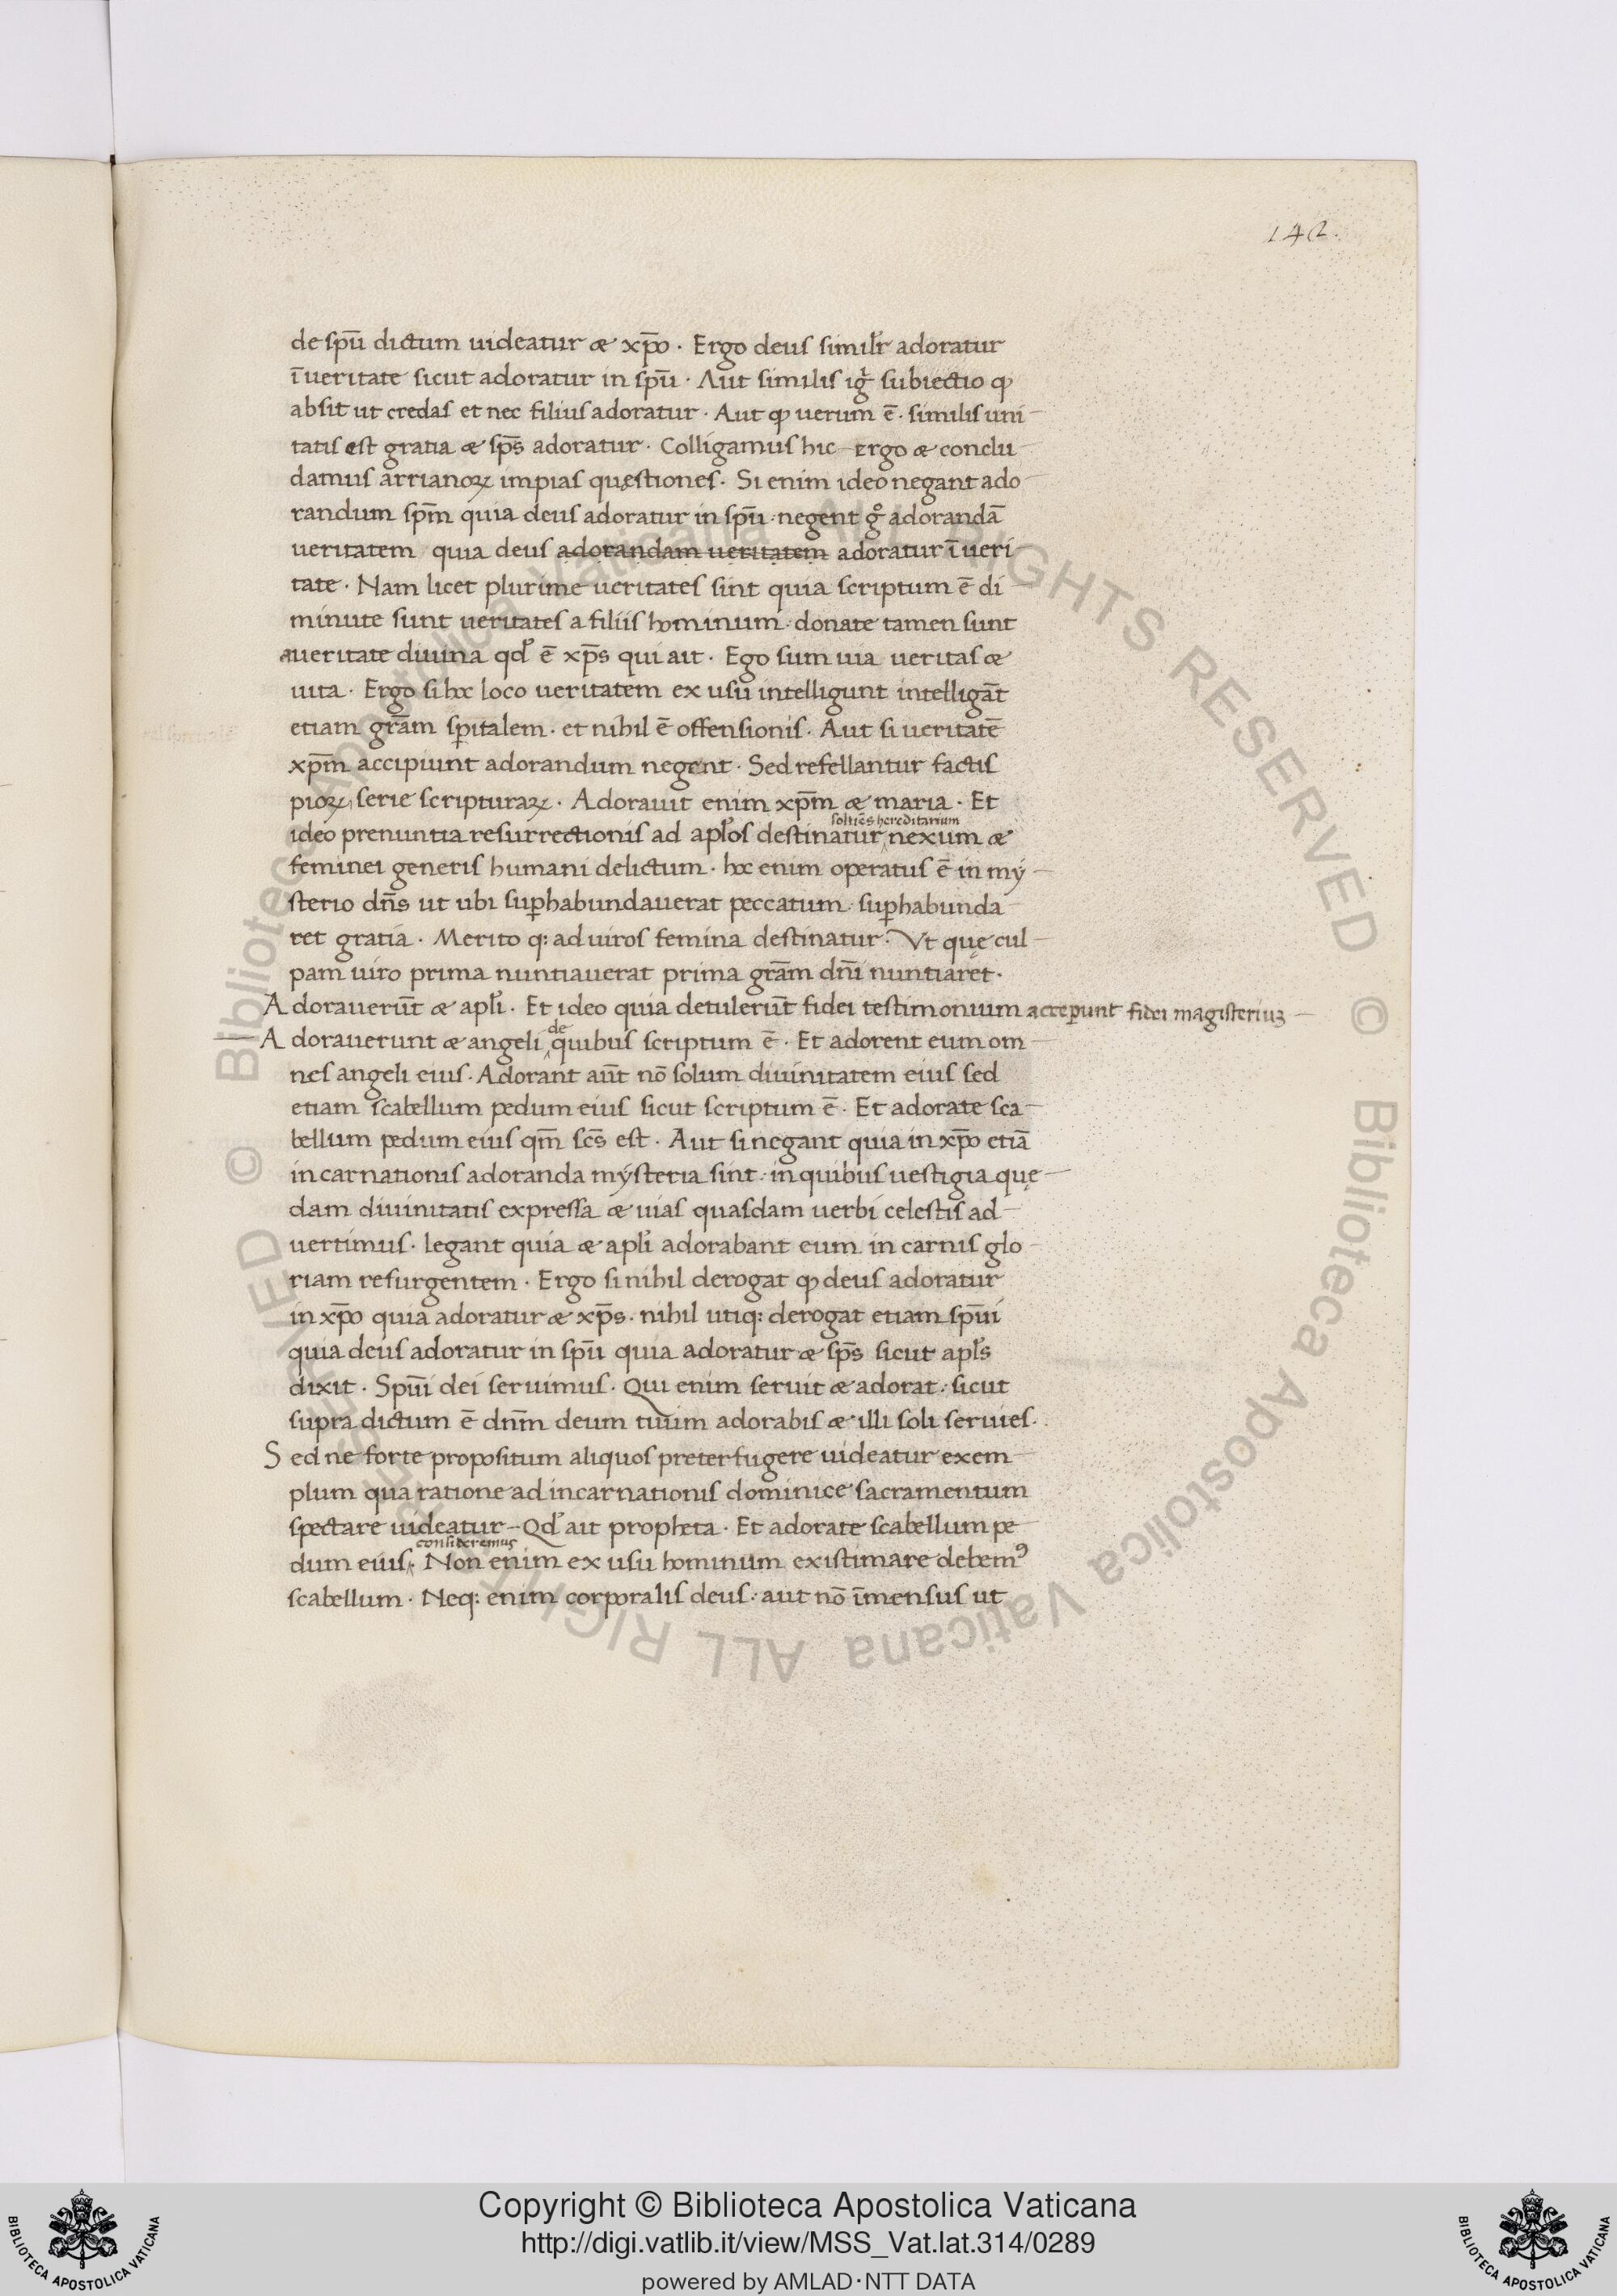 142.
de ſpū dictum uideatur & xp̄o · Ergo deuſ ſimilr̄ adoratur
ī ueritate ſicut adoratur in ſpū · Aut ſimiliſ igr̄ ſubiectio ꝙ
abſit ut credaſ et nec filiuſ adoratur · Aut ꝙ uerum ē · ſimiliſ uni
tatiſ eſt gratia & ſp̄s adoratur · Colligamuſ hic ergo & conclu
damuſ arrianoꝝ impiaſ quęſtioneſ · Si enim ideo negant ado
randum ſp̄m quia deuſ adoratur in ſpū · negent gͦ adorandā
ueritatem quia deuſ adorandam ueritatem adoratur ī ueri
tate · Nam licet plurime ueritateſ ſint quia ſcriptum ē di
minute ſunt ueritateſ a filiiſ hominum · donate tamen ſunt
a ueritate diuina qd̛ ē xp̄s qui ait · Ego ſum uia ueritaſ &
uita · Ergo ſi hoc loco ueritatem ex uſu intelligunt intelligāt
etiam gr̄am ſpitalem · et nihil ē offenſioniſ · Aut ſi ueritatē
xp̄m accipiunt adorandum negent · Sed refellantur factiſ
pioꝝ, ſerie ſcripturaꝝ · Adorauit enim xp̄m & maria · Et
ſoltiēs hereditarium
ideo prenuntia reſurrectioniſ ad apl̄os deſtinatur nexum &
feminei generiſ humani delictum · hoc enim operatuſ ē in mẏ
ſterio dn̄s ut ubi ſuꝑhabundauerat peccatum · ſuꝑhabunda
ret gratia · Merito q: ad uiroſ femina deſtinatur · Vt quę cul
pam uiro prima nuntiauerat prima gr̄am dn̄i nuntiaret ·
Adorauerūt & apl̄i · Et ideo quia detulerūt fidei teſtimonium acceꝑunt fidei magiſteriuꝫ
de
Adorauerunt & angeli quibuſ ſcriptum ē · Et adorent eum om
neſ angeli eiuſ · Adorant aūt nō ſolum diuinitatem eiuſ ſed
etiam ſcabellum pedum eiuſ ſicut ſcriptum ē · Et adorate ſca
bellum pedum eiuſ qm̄ ſc̄s eſt · Aut ſi negant quia in xp̄o etiā
incarnationiſ adoranda mẏſteria ſint · in quibuſ ueſtigia quę
dam diuinitatiſ expreſſa & uiaſ quaſdam uerbi celeſtiſ ad
uertimuſ · legant quia & apl̄i adorabant eum in carniſ glo
riam reſurgentem · Ergo ſi nihil derogat ꝙ deuſ adoratur
in xp̄o quia adoratur & xp̄s · nihil utiq: derogat etiam ſpūi
quia deuſ adoratur in ſpū quia adoratur & ſp̄s ſicut apl̄s
dixit · Spūi dei ſeruimuſ · Qui enim ſeruit & adorat · ſicut
ſupra dictum ē dn̄m deum tuum adorabiſ & illi ſoli ſeruieſ ·
Sed ne forte propoſitum aliquoſ preterfugere uideatur exem
plum qua ratione ad incarnationiſ dominice ſacramentum
ſpectare uideatur – Qd̛ ait propheta · Et adorate ſcabellum pe
conſideremuſ
dum eiuſ · Non enim ex uſu hominum exiſtimare debemꝰ
ſcabellum · Neq: enim corporaliſ deuſ · aut nō īmenſuſ ut
Copyright © Biblioteca Apostolica Vaticana
http://digi.vatlib.it/view/MSS_Vat.lat.314/0289
powered by AMLAD·NTT DATA
BIBLIOTECA APOSTOLICA VATICANA
BIBLIOTECA APOSTOLICA VATICANA
© Biblioteca Apostolica Vaticana ALL RIGHTS RESERVED © Biblioteca Apostolica Vaticana ALL RIGHTS RESERVED